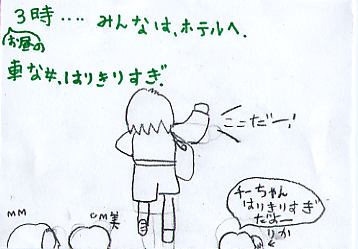 3時‥‥みんなは、ホテルへ.
お昼の
車なみ、はりきりすぎ.
ここだー!
チーちゃん
はりきりすぎ
だよー
りか
MM
CM美